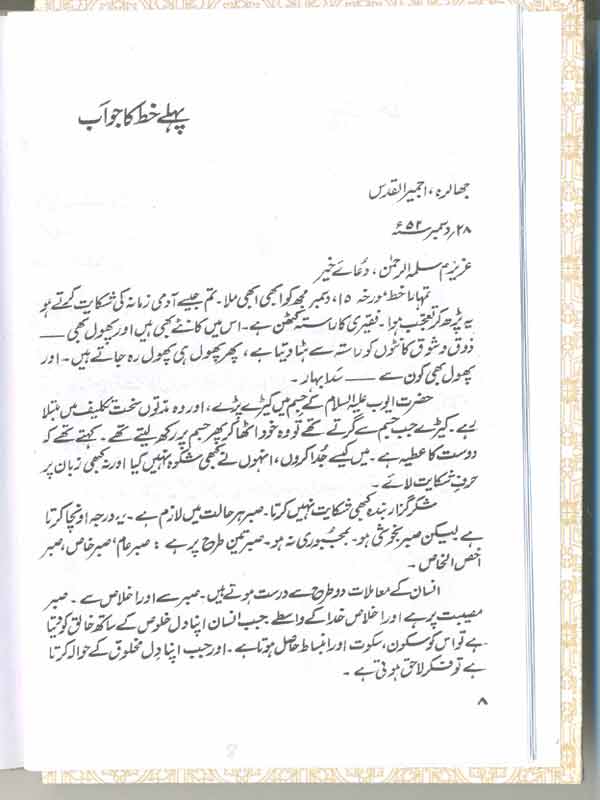 پہلے خط کا جواب
جھالرہ، اجمیر القدس
۲۸؍ دسمبر سنہ ۵۲ء
عزیزم سلمہ الرحمٰن، دُعائے خیر
تمہارا خط مورخہ ۱۵، دسمبر مجھ کو ابھی ابھی ملا۔ تم جیسے آدمی زمانہ کی شکایت کرتے ہو
یہ پڑھ کر تعجب ہوا۔ فقیری کا راستہ کٹھن ہے۔ اس میں کانٹے بھی ہیں اور پھول بھی ——
ذوق و شوق کانٹوں کو راستہ سے ہٹا دیتا ہے، پھر پھول ہی پھول رہ جاتے ہیں۔ اور
پھول بھی کون سے —— سَدا بہار۔
حضرت ایوب علیہ السلام کے جسم میں کیڑے پڑے، اور وہ مدتوں سخت تکلیف میں مبتلا
رہے۔ کیڑے جب جسم سے گرتے تھے تو وہ خود اٹھا کر پھر جسم پر رکھ لیتے تھے۔ کہتے تھے کہ
دوست کا عطیہ ہے۔ میں کیسے جُدا کروں، انہوں نے کبھی شکوہ نہیں کیا اور نہ کبھی زبان پر
حرفِ شکایت لائے۔
شکر گزار بندہ کبھی شکایت نہیں کرتا۔ صبر ہر حالت میں لازم ہے۔ یہ درجہ اونچا کرتا
ہے لیکن صبر بخوشی ہو۔ بمجبوری نہ ہو۔ صبر تین طرح پر ہے: صبر عام، صبر خاص، صبر
اخص الخاص۔
انسان کے معاملات دو طرح سے درست ہوتے ہیں۔ صبر سے اور اخلاص سے۔ صبر
مصیبت پر ہے اور اخلاص خدا کے واسطے۔ جب انسان اپنا دل خلوص کے ساتھ خالق کو دیتا
ہے تو اس کو سکون، سکوت اور انبساط حاصل ہوتا ہے۔ اور جب اپنا دل مخلوق کے حوالہ کرتا
ہے تو فکر لاحق ہوتی ہے۔
۸